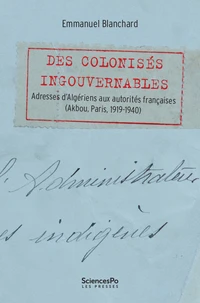 Emmanuel Blanchard
DES COLONISÉS
INGOUVERNABLES
Adresses d'Algériens aux autorités françaises
(Akbou, Paris, 1919-1940)
l'Administrateur
es indigènes
SciencesPo
LES PRESSES